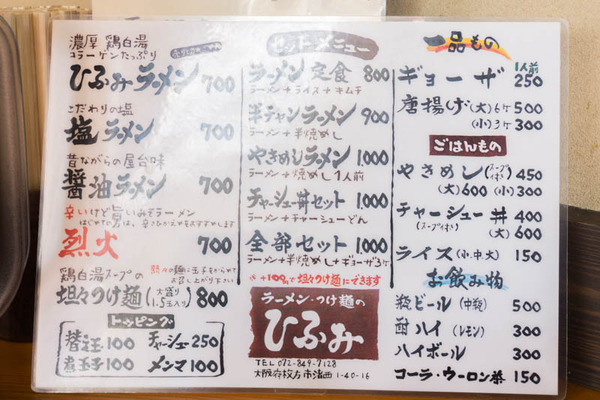 濃厚 鶏白湯
コラーゲンたっぷり
ひろみラーメン 700
こだわりの塩
塩ラーメン 700
昔ながらの屋台味
醤油ラーメン 700
辛いけど旨いみそラーメン
烈火 700
鶏白湯スープの
坦々つけ麺 (大盛り 1.5玉入り) 800
トッピング
替え玉 100 チャーシュー 250
煮玉子 100 メンマ 100
セットメニュー
ラーメン定食 800
ラーメン+ライス+キムチ
半チャンラーメン 900
ラーメン+半焼めし
やきめしラーメン 1,000
ラーメン+焼めし1人前
チャーシュー丼セット 1,000
ラーメン+チャーシューどん
全部セット 1,000
ラーメン+半焼めし+ギョーザ3ケ
※+100円で坦々つけ麺にできます
ラーメン・つけ麺の
ひろみ
TEL 072-849-7128
大阪府枚方市渚西1-40-16
一品もの
ギョーザ 1人前 250
唐揚げ (大)6ケ 500
(小)3ケ 300
ごはんもの
やきめし (スープ付) 450
(大) 600 (小) 300
チャーシュー丼 400
(スープ付) (大) 600
ライス (小.中.大) 150
お飲み物
瓶ビール (中瓶) 500
酎ハイ (レモン) 300
ハイボール 300
コーラ・ウーロン茶 150